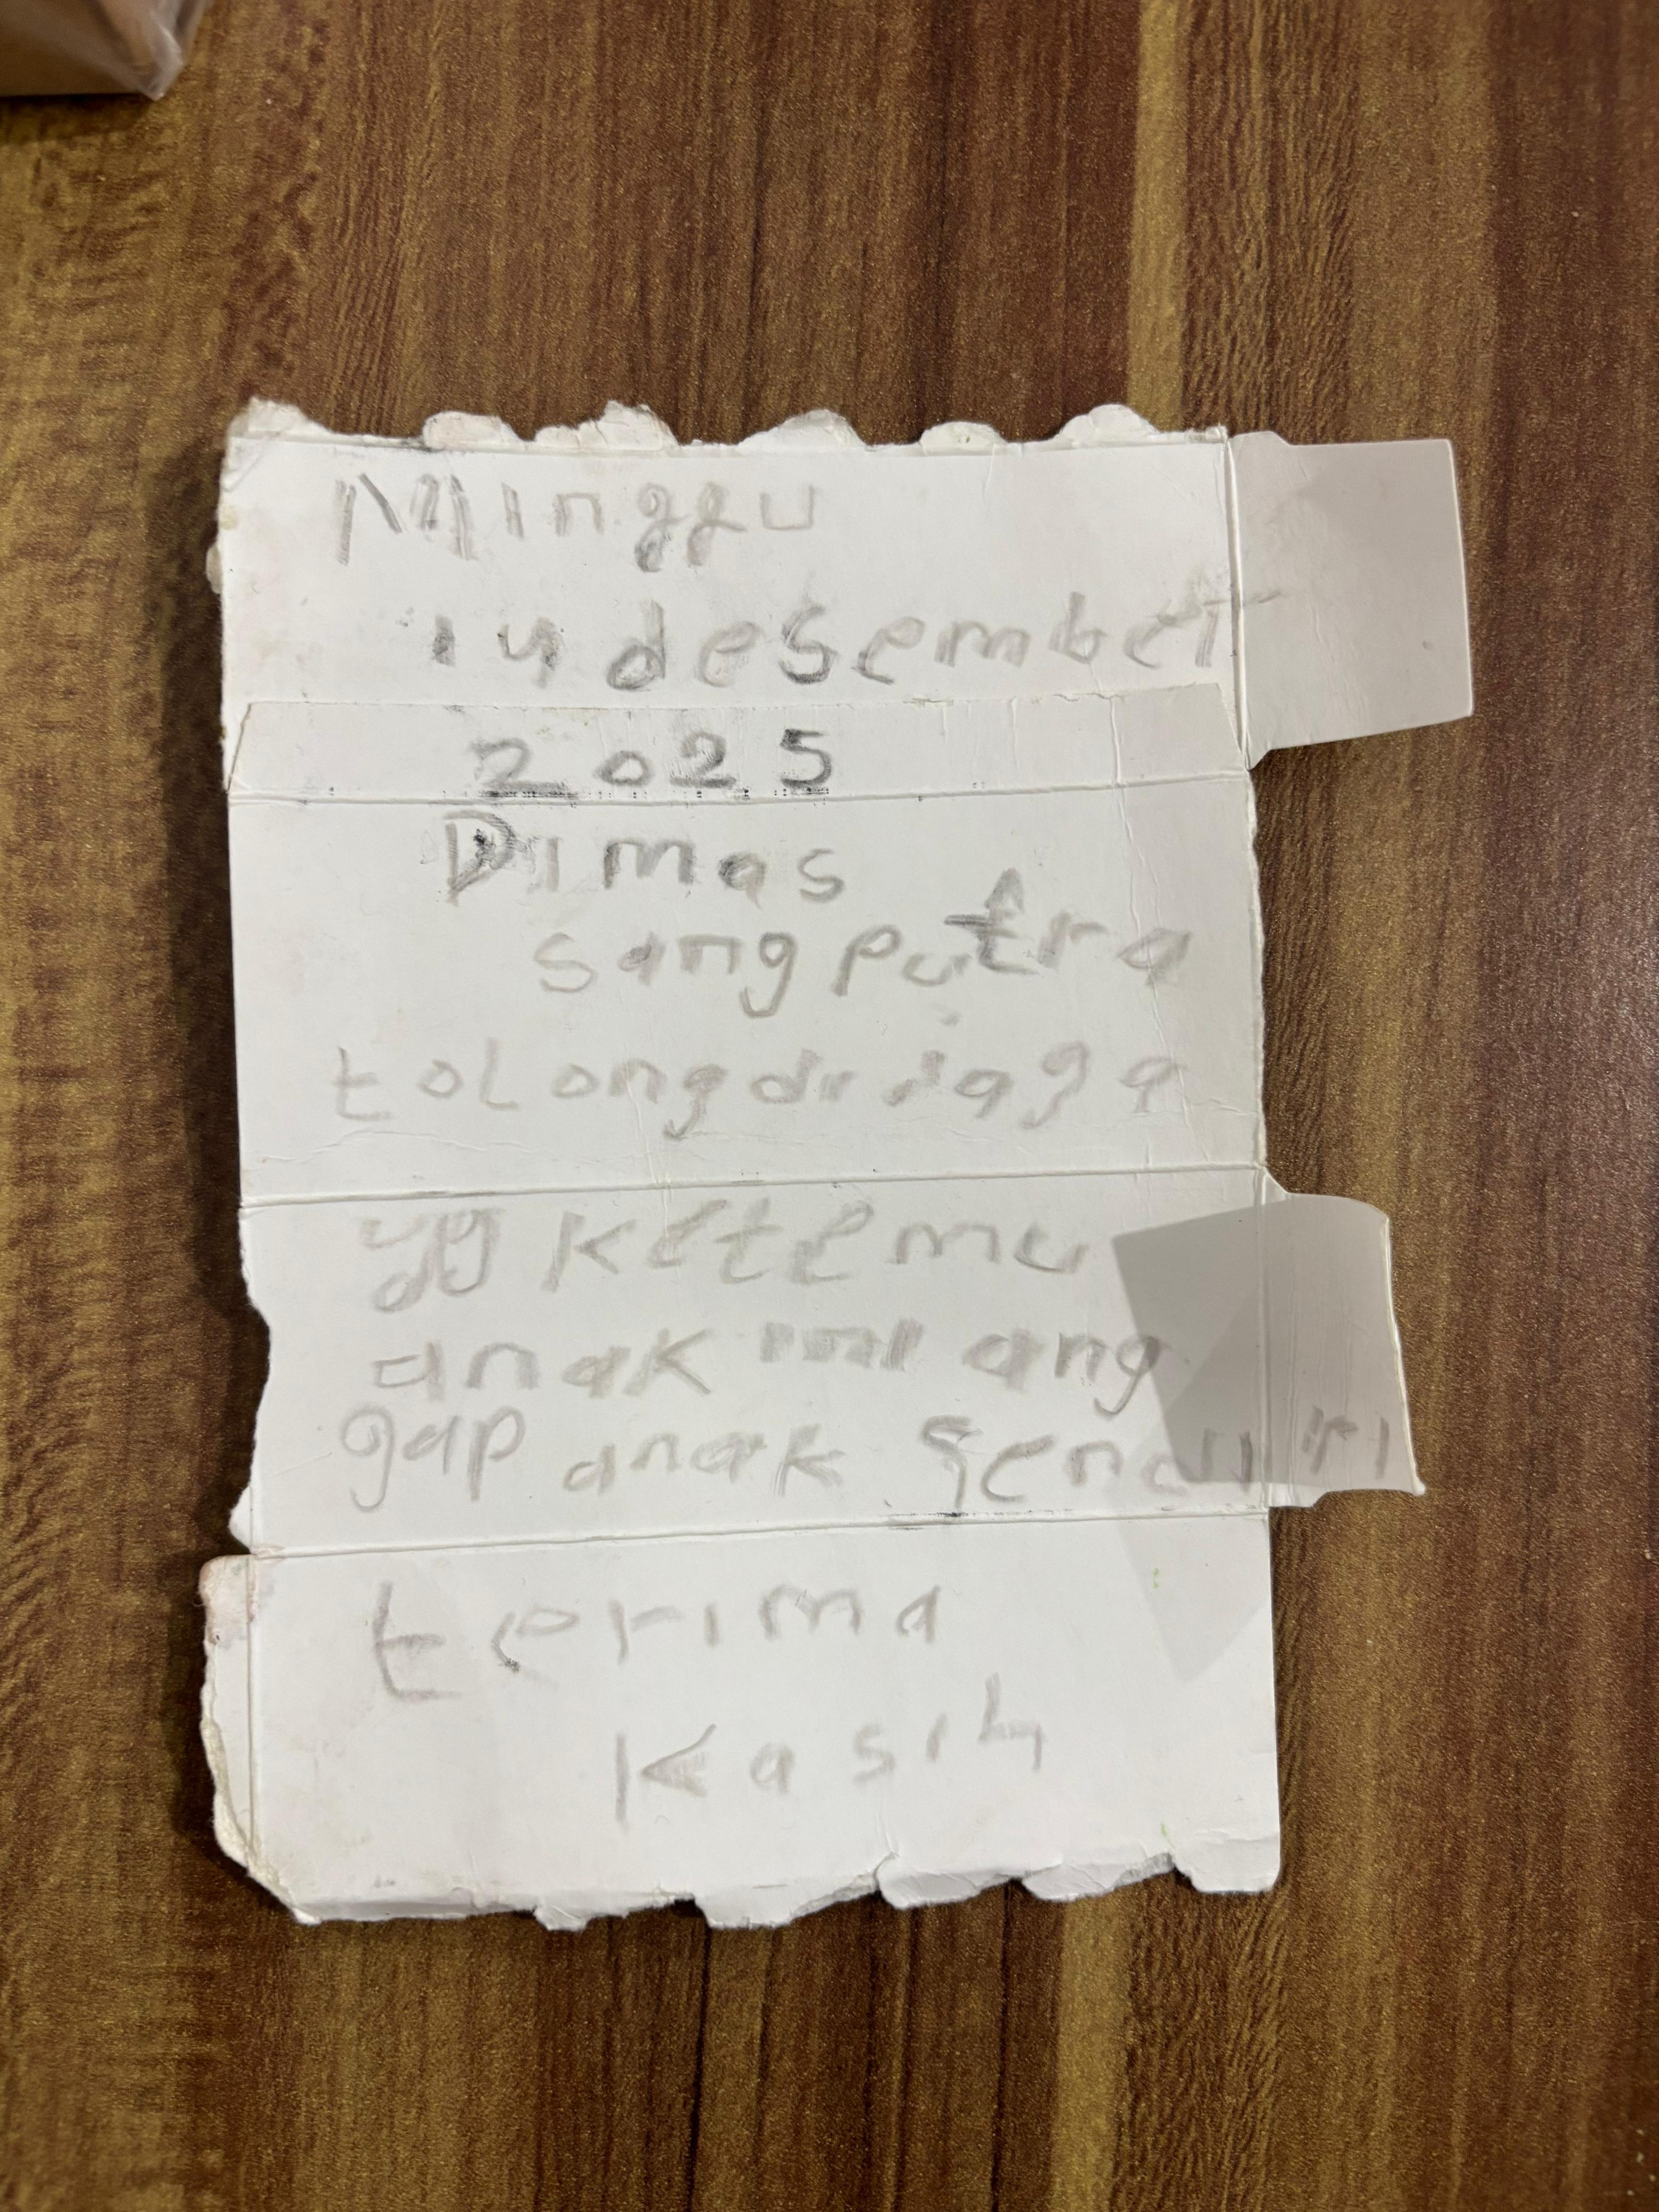 Minggu
14 desember
2025
Dimas
sang putra
toLong di jaga
yg ketemu
anak ini ang
gap anak sendiri
terima
Kasih